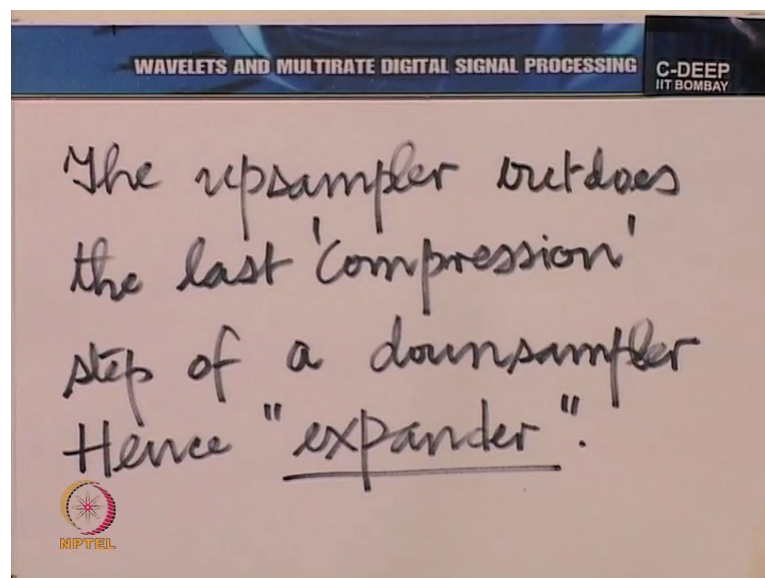 WAVELETS AND MULTIRATE DIGITAL SIGNAL PROCESSING
C-DEEP
IIT BOMBAY
The upsampler outdoes
the last 'compression'
step of a downsampler
Hence "expander".
NPTEL